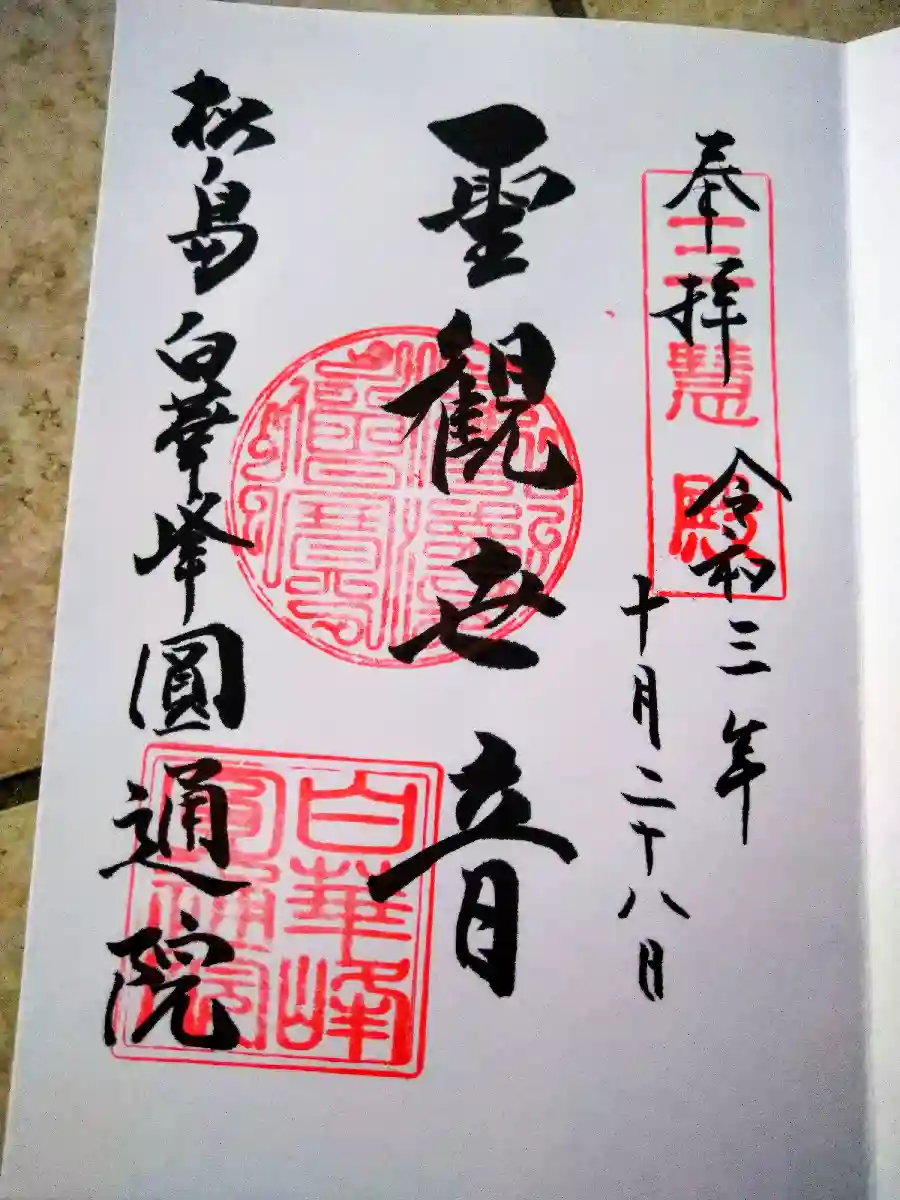 奉拝
令和三年
十月二十八日
三慧殿
聖観世音
松島白華峰圓通院
白華峰
圓通院